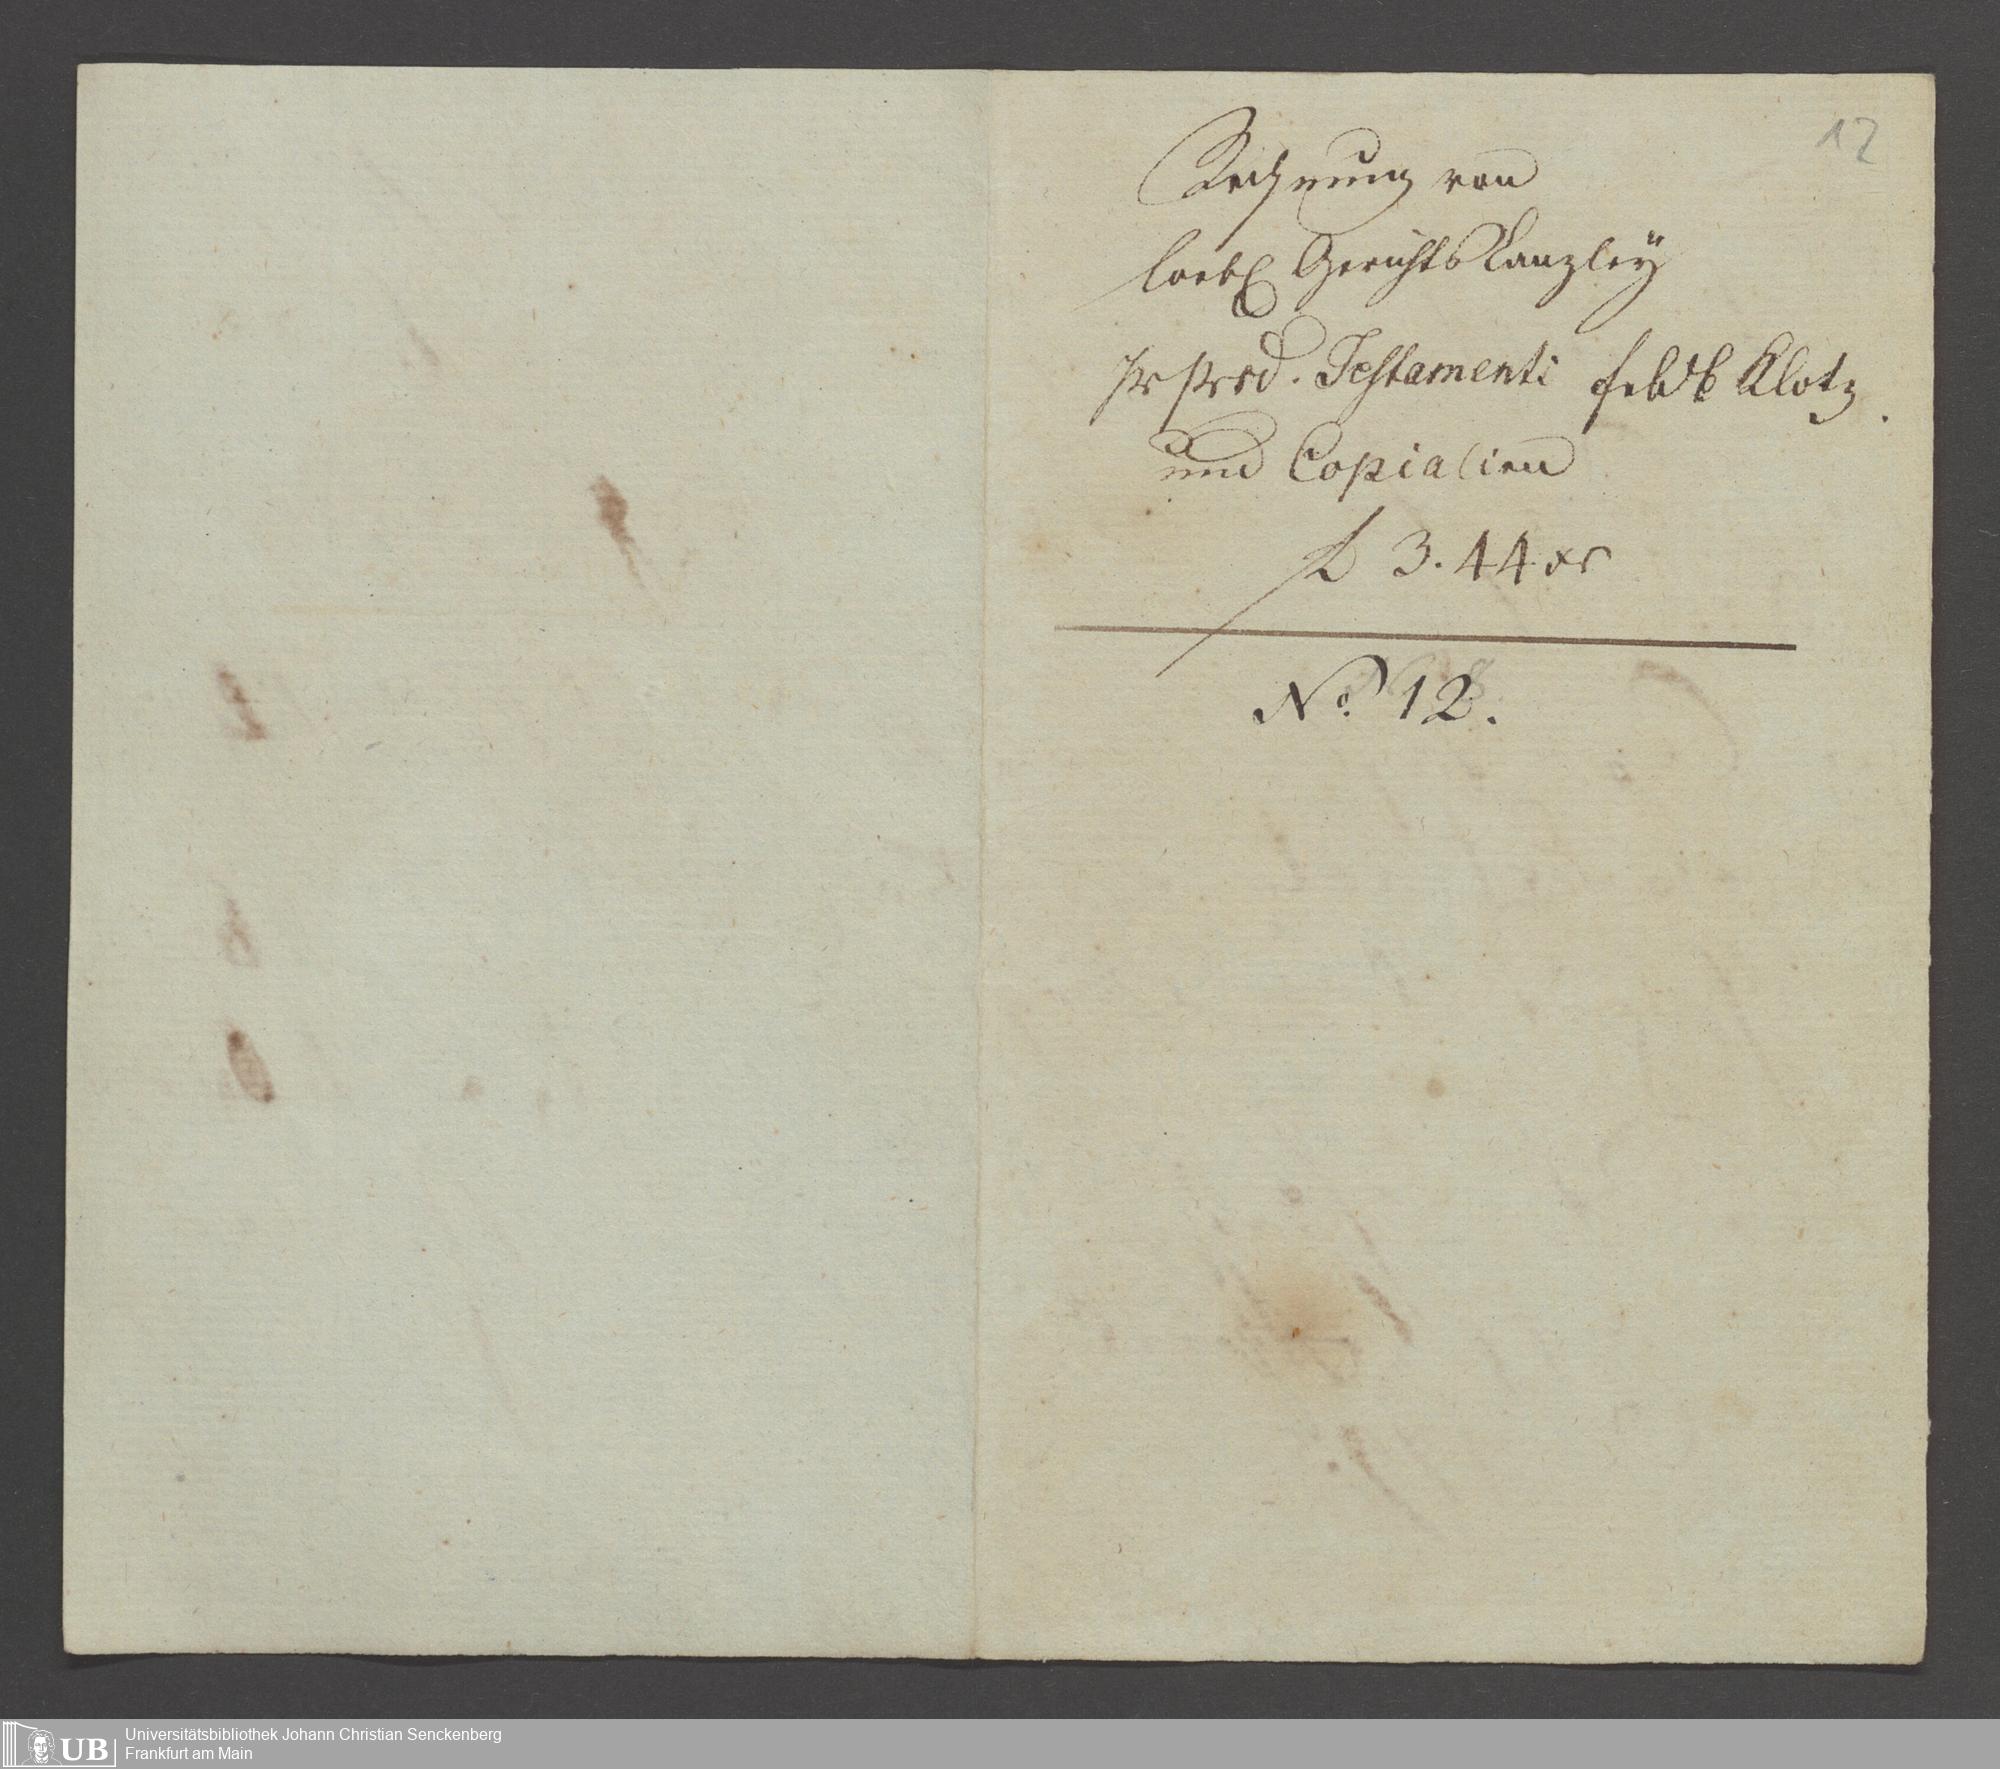 12
Rechnung von
loebl Gerichts Canzley
Testamenti Klotz
und Copialien
f 3. 44 xr
No. 12.
UB
Universitätsbibliothek Johann Christian Senckenberg
Frankfurt am Main